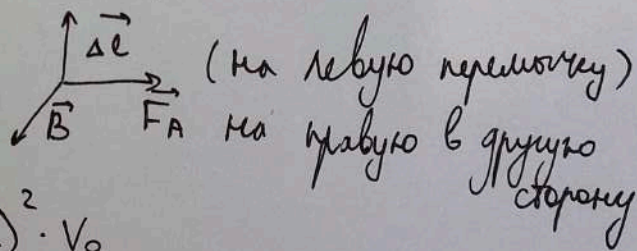 Δℓ⃗ (на левую перемычку)
B⃗ F⃗_A на правую в другую
сторону
)² · V₀